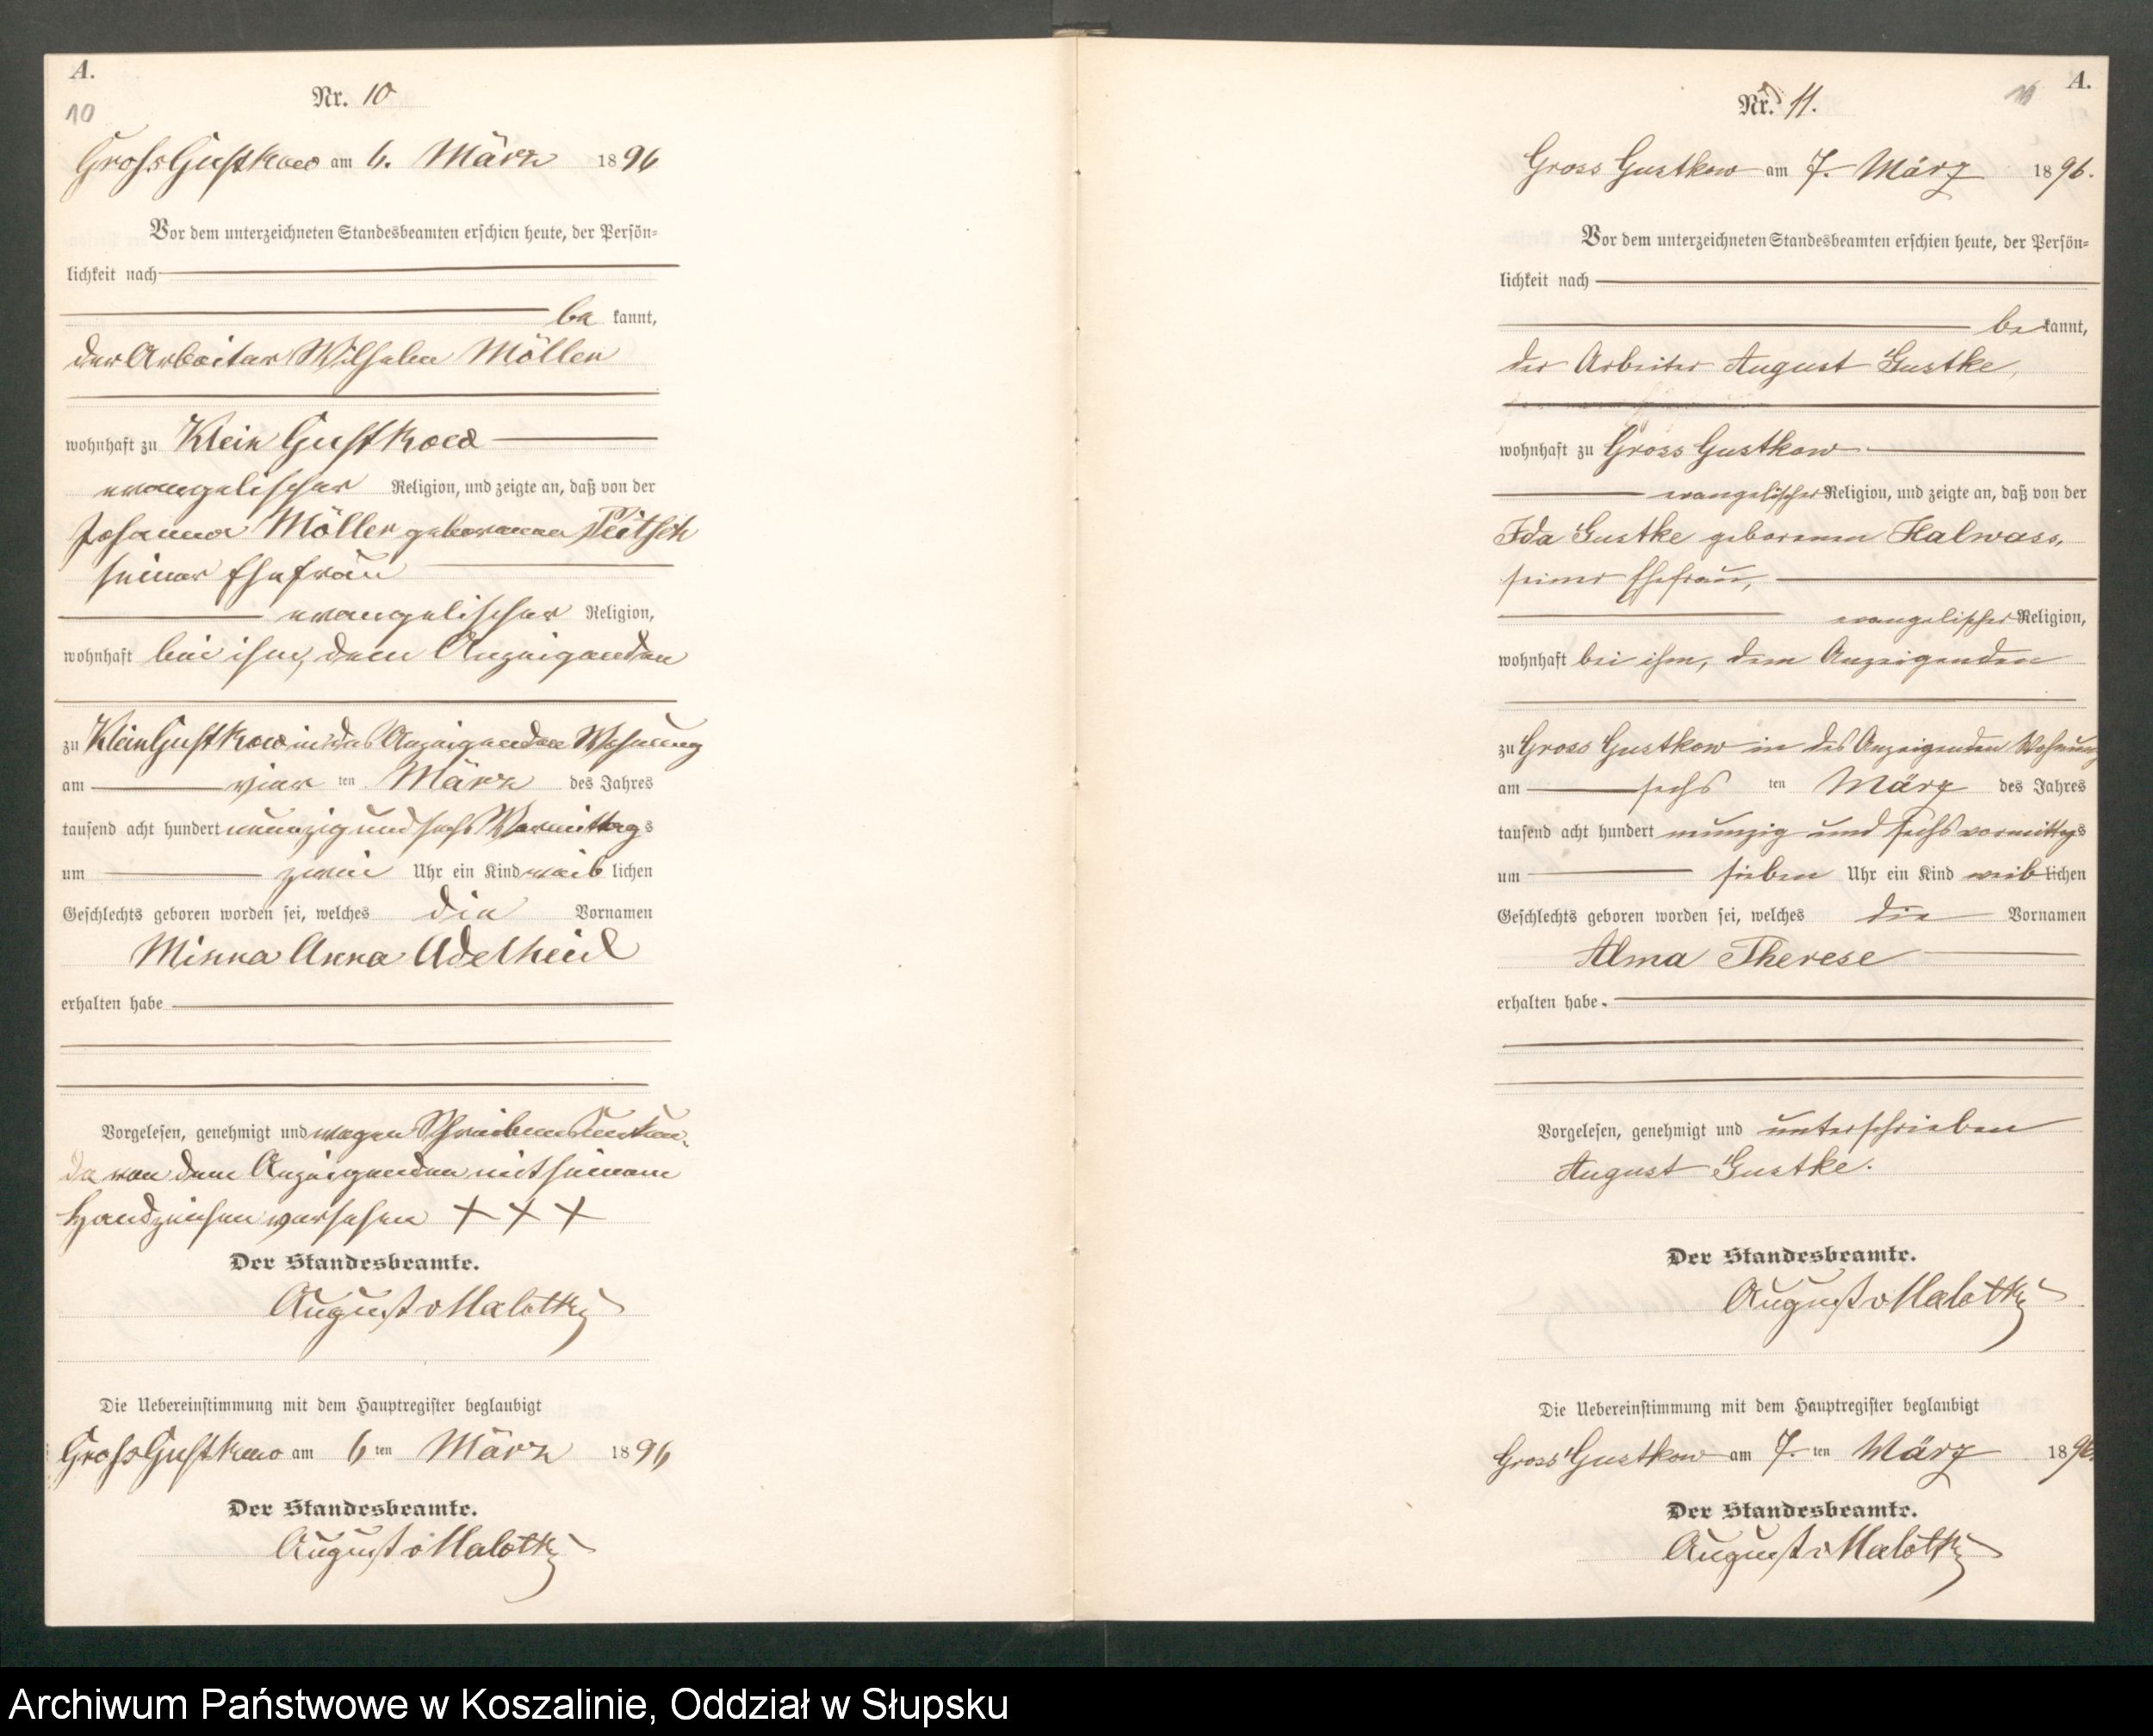 A.
10
Nr. 10
Gross Gustkow am 6. März 1896
Vor dem unterzeichneten Standesbeamten erschien heute, der Persön=
lichkeit nach
be kannt,
der Arbeiter Wilhelm Möller
wohnhaft zu Klein Gustkow
evangelischer Religion, und zeigte an, daß von der
Johanna Möller geborenen Peitsch
seiner Ehefrau
evangelischer Religion,
wohnhaft bei ihm, dem Anzeigenden
zu Klein Gustkow in des Anzeigenden Wohnung
am vier ten März des Jahres
tausend acht hundert neunzig und sechs Vormittags
um zwei Uhr ein Kind weib lichen
Geschlechts geboren worden sei, welches die Vornamen
Minna Anna Adelheid
erhalten habe
Vorgelesen, genehmigt und wegen Schreibensunkun-
de von dem Anzeigenden mit seinem
Handzeichen versehen + + +
Der Standesbeamte.
August v Malottky
Die Uebereinstimmung mit dem Hauptregister beglaubigt
Gross Gustkow am 6 ten März 1896
Der Standesbeamte.
August v Malottky
A.
11
Nr. 11.
Gross Gustkow am 7. März 1896.
Vor dem unterzeichneten Standesbeamten erschien heute, der Persön=
lichkeit nach
be kannt,
der Arbeiter August Gustke,
wohnhaft zu Gross Gustkow
evangelischer Religion, und zeigte an, daß von der
Ida Gustke geborenen Halwass,
seiner Ehefrau,
evangelischer Religion,
wohnhaft bei ihm, dem Anzeigenden
zu Gross Gustkow in des Anzeigenden Wohnung
am sechs ten März des Jahres
tausend acht hundert neunzig und sechs vormittags
um sieben Uhr ein Kind weib lichen
Geschlechts geboren worden sei, welches die Vornamen
Alma Therese
erhalten habe.
Vorgelesen, genehmigt und unterschrieben
August Gustke.
Der Standesbeamte.
August v Malottky
Die Uebereinstimmung mit dem Hauptregister beglaubigt
Gross Gustkow am 7. ten März 1896.
Der Standesbeamte.
August v Malottky
Archiwum Państwowe w Koszalinie, Oddział w Słupsku